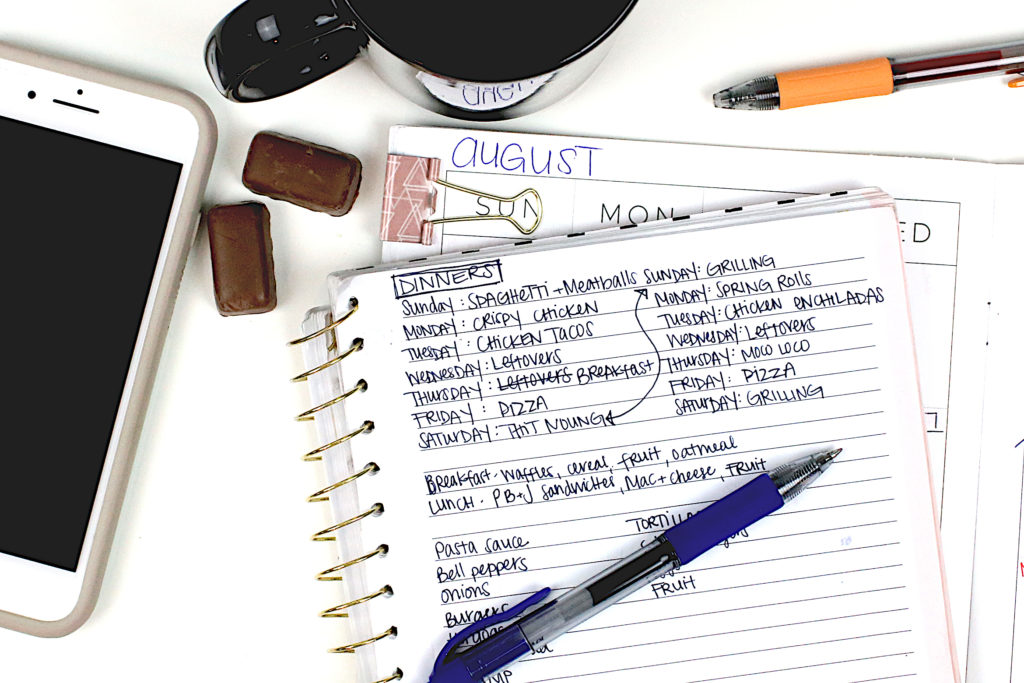 AUGUST
SUN MON
DINNERS
Sunday: SPAGHETTI + Meatballs
MONDAY: CRISPY CHICKEN
TUESDAY: CHICKEN TACOS
WEDNESDAY: Leftovers
THURSDAY: Leftovers BREAKFAST
FRIDAY: PIZZA
SATURDAY:
SUNDAY: GRILLING
MONDAY: SPRING ROLLS
TUESDAY: CHICKEN ENCHILADAS
WEDNESDAY: Leftovers
THURSDAY: MOCO LOCO
FRIDAY: PIZZA
SATURDAY: GRILLING
Breakfast- Waffles, cereal, fruit, oatmeal
LUNCH- PB+J sandwiches, Mac+cheese, FRUIT
Pasta sauce
Bell peppers
onions
Burgers
FRUIT